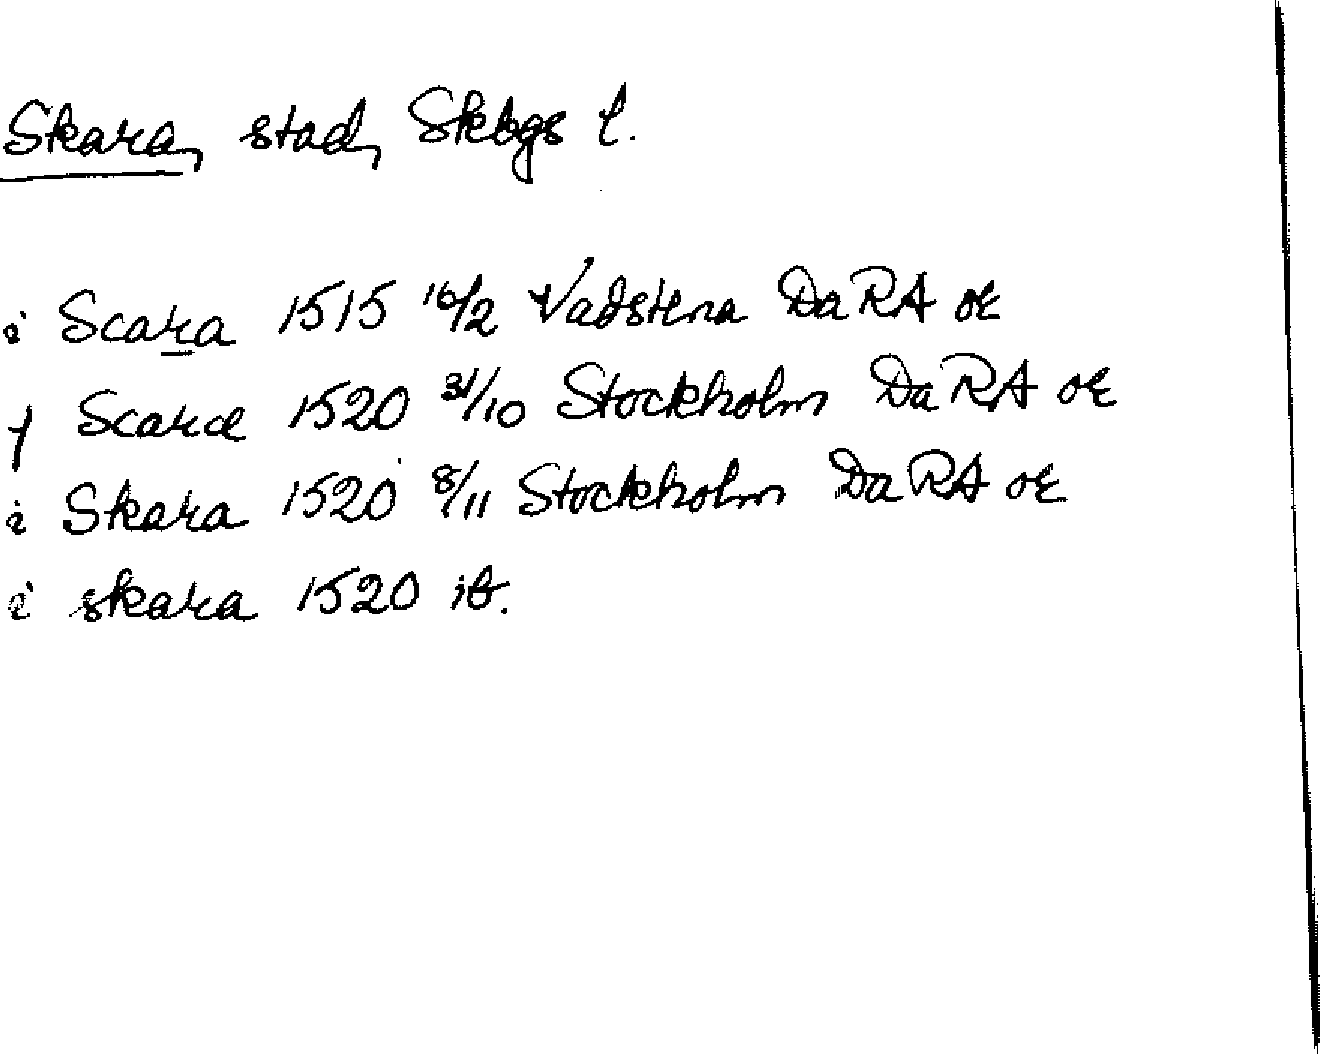 Skara, stad, Skbgs l.
i Scara 1515 16/2 Vadstena DaRA or
j Scaræ 1520 31/10 Stockholm DaRA or
i Skara 1520 8/11 Stockholm DaRA or
i skara 1520 ib.